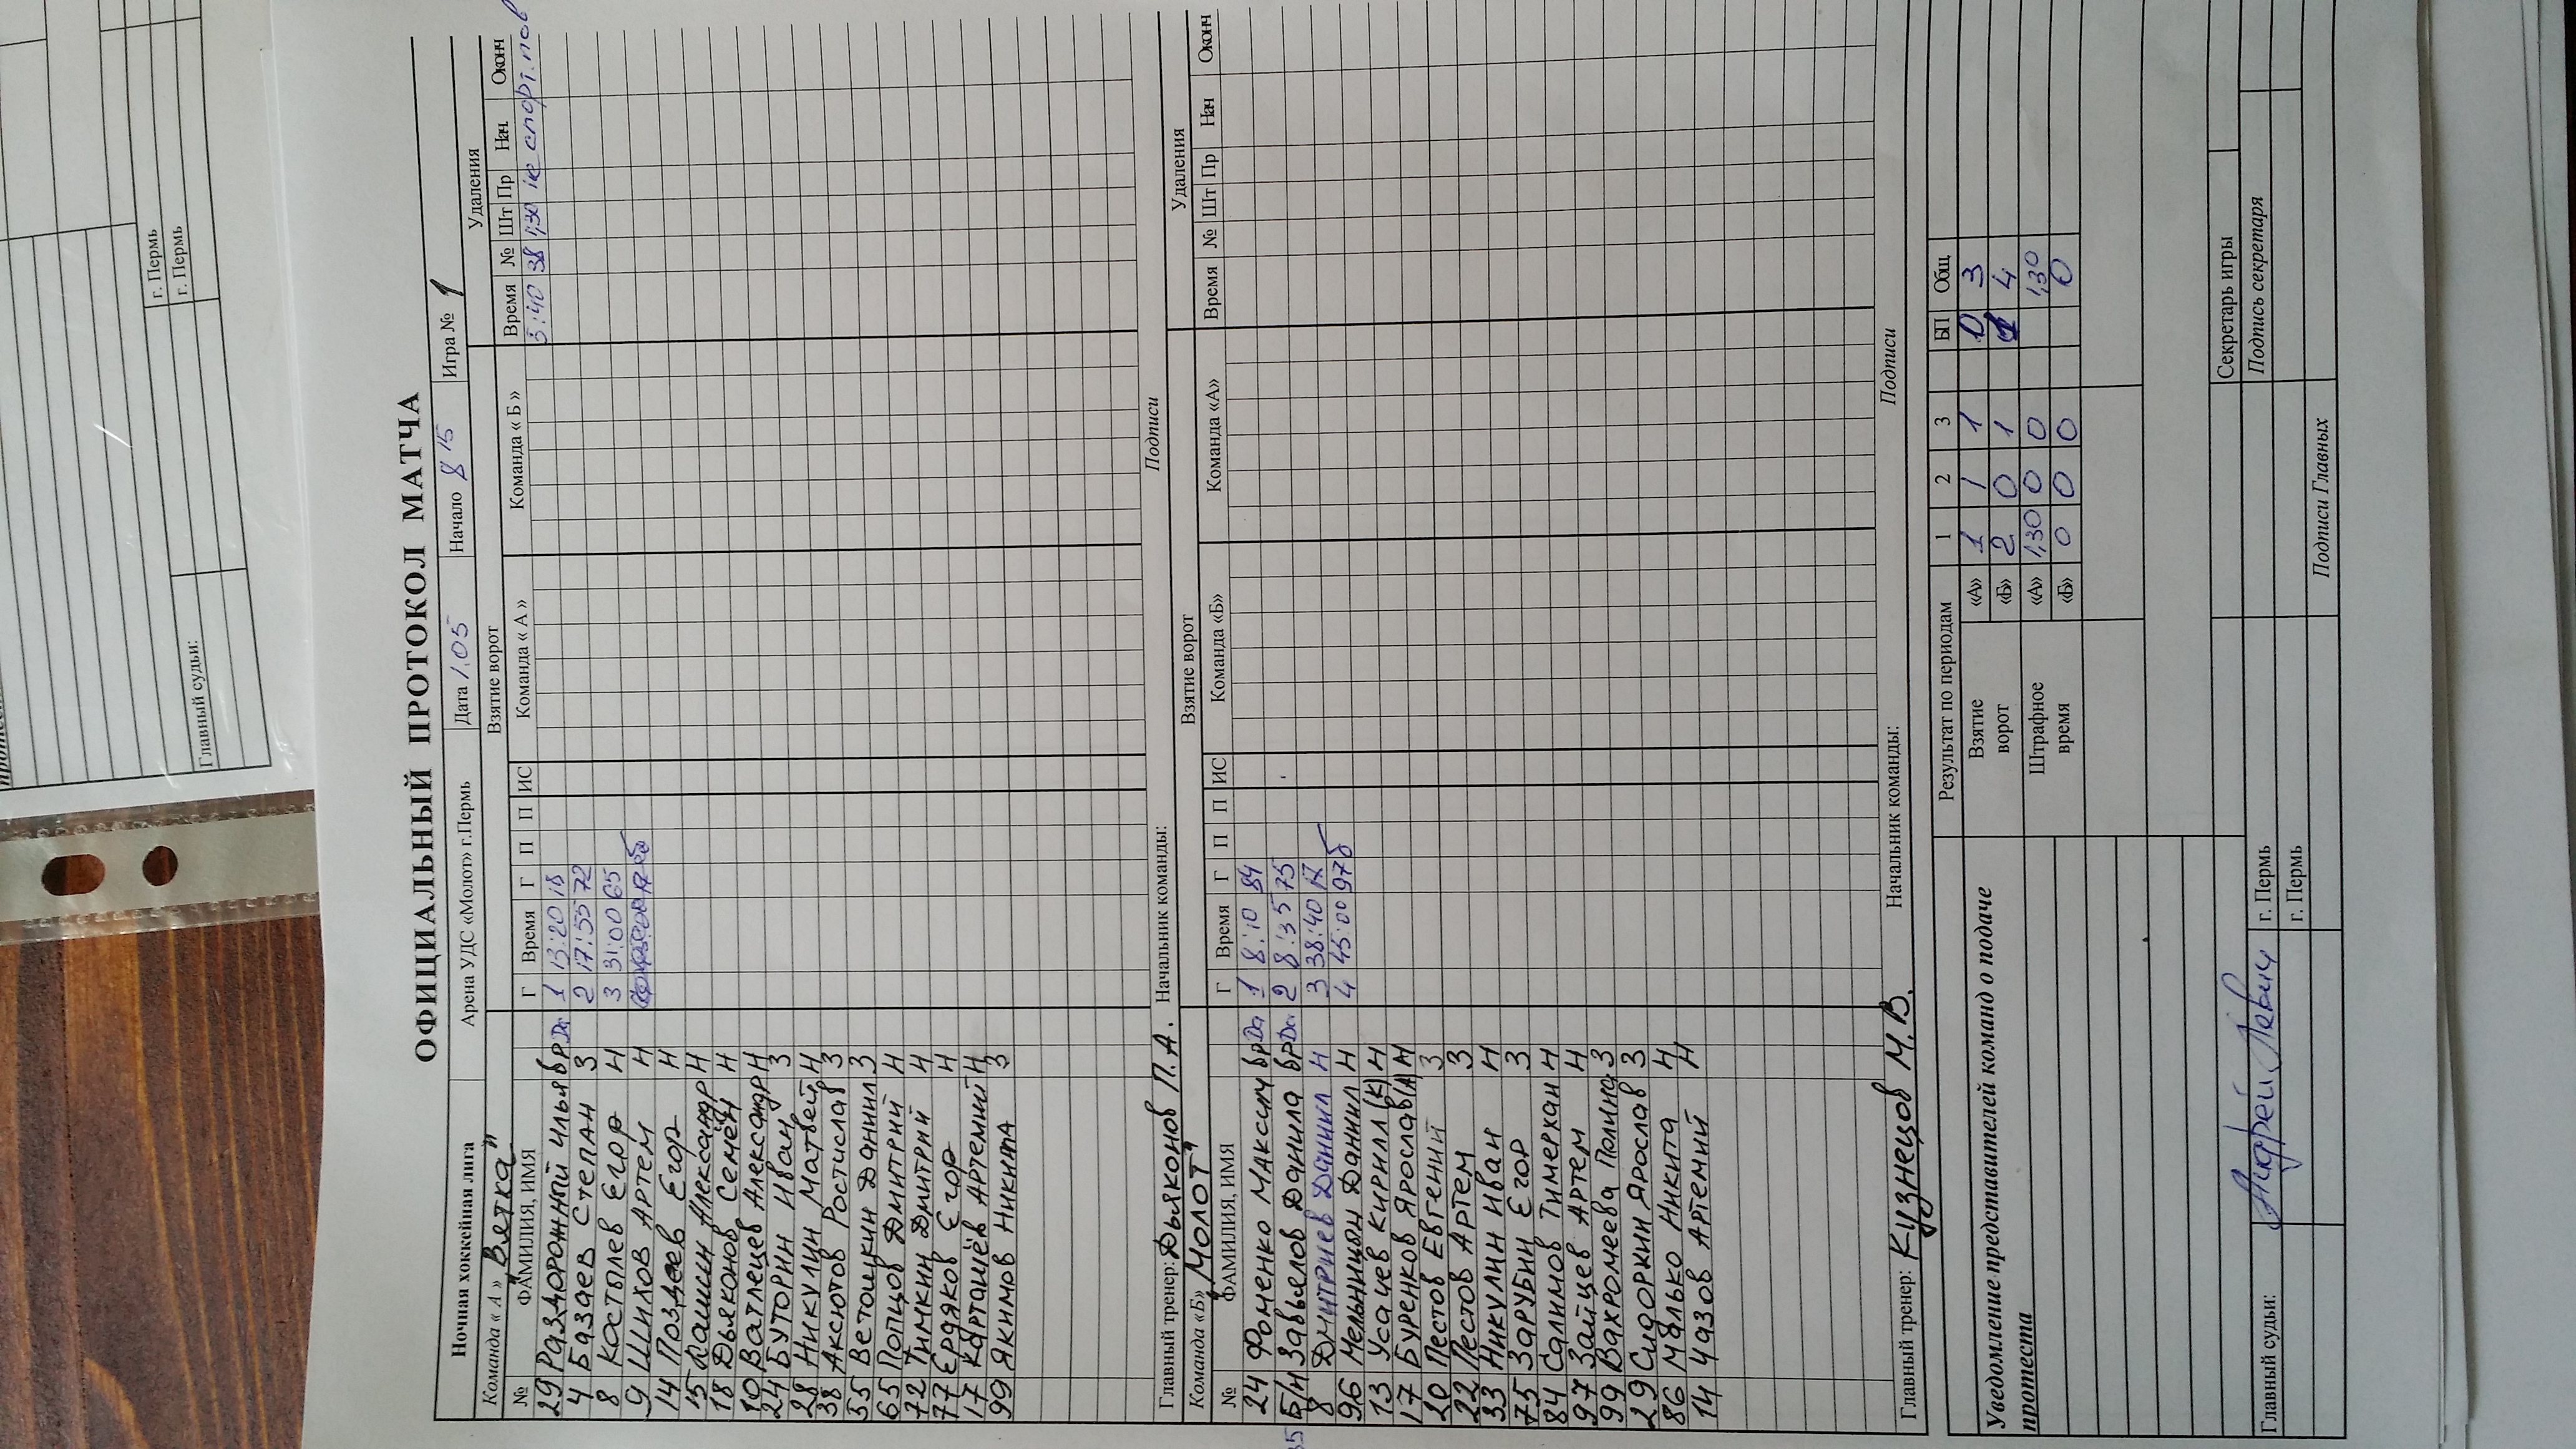 г. Пермь
г. Пермь
Главный судьи:
ОФИЦИАЛЬНЫЙ ПРОТОКОЛ МАТЧА
Ночная хоккейная лига Арена УДС «Молот» г.Пермь Дата 1.05 Начало 8 15 Игра № 1
Команда « А » "Вятка" Взятие ворот Удаления
№ ФАМИЛИЯ, ИМЯ Г Время Г П П ИС Команда « А » Команда « Б » Время № Шт Пр Нач. Оконч
29 Раздорожный Илья вр Да 1 13:20 18 5:40 38 1,30
4 Базаев Степан З 2 17:55 72
8 Костылев Егор Н 3 31:00 65
9 Шихов Артем Н
14 Поздеев Егор Н
15 Лашин Александр Н
18 Дьяконов Семён Н
10 Ватлецев Александр Н
24 Буторин Иван З
28 Никулин Матвей Н
38 Аксютов Ростислав З
55 Ветошкин Даниил З
65 Попцов Дмитрий Н
72 Тимкин Дмитрий Н
77 Ердяков Егор Н
17 Карташёв Артемий Н
99 Якимов Никита З
Главный тренер: Дьяконов П.А. Начальник команды: Подписи
Команда «Б» "Молот" Взятие ворот Удаления
№ ФАМИЛИЯ, ИМЯ Г Время Г П П ИС Команда «Б» Команда «А» Время № Шт Пр Нач Оконч
24 Фоменко Максим вр Да 1 8:10 84
Б/Н Завьялов Данила вр Да 2 8:35 75
8 Дмитриев Даниил Н 3 38:40 17
96 Мельницин Даниил Н 4 45:00 97 б
13 Усачев Кирилл (К) Н
17 Буренков Ярослав (А) Н
20 Пестов Евгений З
22 Пестов Артем З
33 Никулин Иван Н
75 Зарубин Егор З
84 Салимов Тимерхан Н
97 Зайцев Артем Н
99 Вахромеева Полина З
29 Сидоркин Ярослав З
86 Малько Никита Н
14 Чазов Артемий Н
Главный тренер: Кузнецов М.В. Начальник команды: Подписи
Результат по периодам 1 2 3 БП Общ
Уведомление представителей команд о подаче протеста
Взятие ворот «А» 1 1 1 0 3
«Б» 2 0 1 1 4
Штрафное время «А» 1,30 0 0 1,30
«Б» 0 0 0 0
Секретарь игры
Главный судьи: Андрей Левич г. Пермь Подпись секретаря
г. Пермь
Подписи Главных